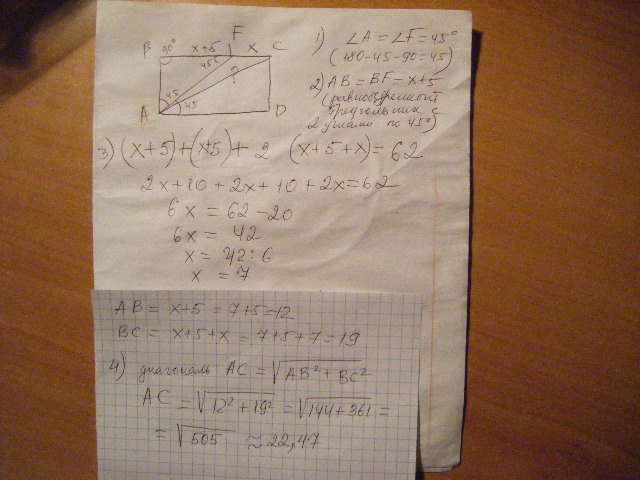 F
B 90° x+5 x C
45
?
45
45
A D
1) ∠A = ∠F = 45°
(180-45-90=45)
2) AB = BF = x+5
(равнобедренный
треугольник с
2 углами по 45°)
3) (x+5)+(x+5)+ 2 (x+5+x)= 62
2x+10+2x+10+2x=62
6x = 62-20
6x = 42
x = 42:6
x = 7
AB = x+5 = 7+5=12
BC = x+5+x = 7+5+7=19
4) диагональ AC = √AB²+BC²
AC = √12²+19² = √144+361 =
= √505 ≈ 22,47